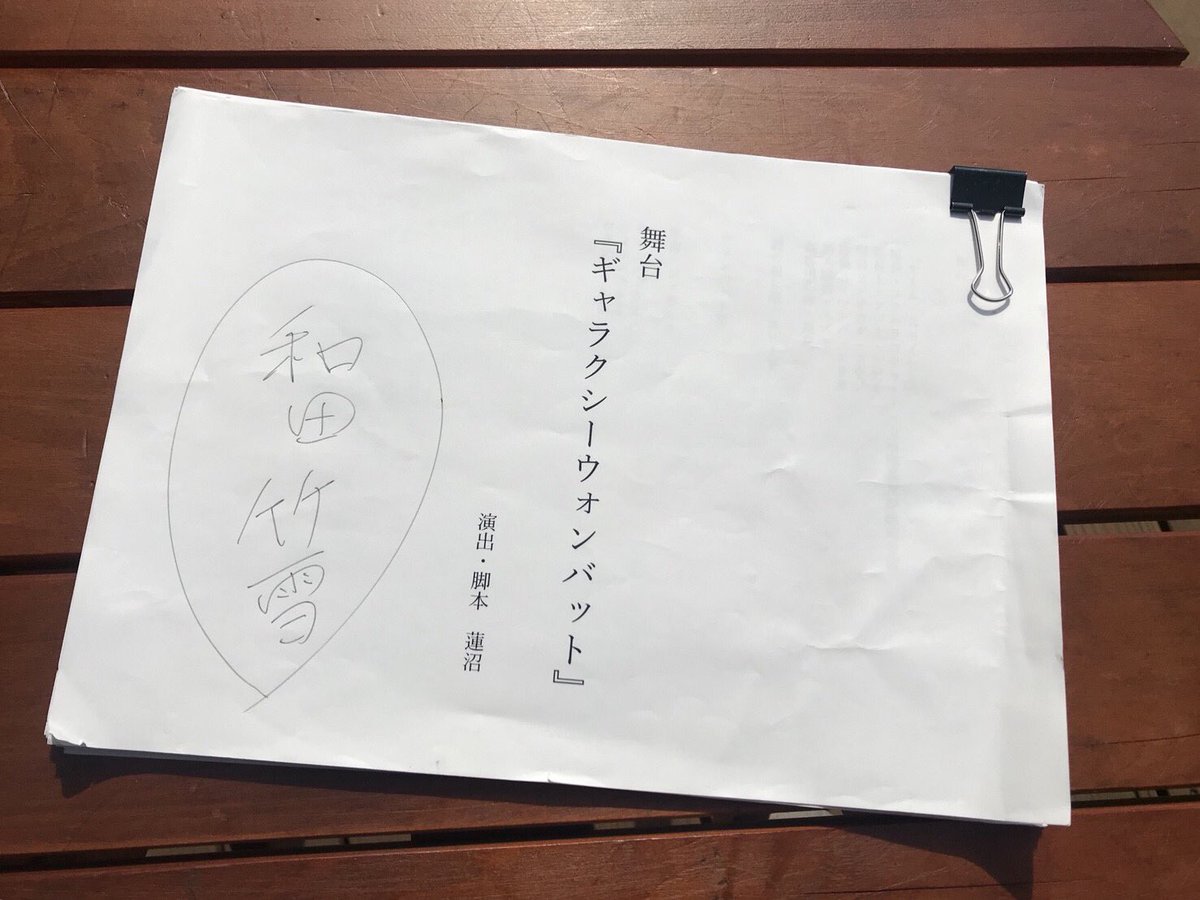 舞台
『ギャラクシーウォンバット』
演出・脚本　蓮沼
和田竹雪